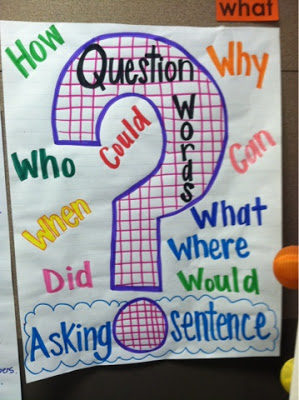 what
How
Question
Words
Why
Could
Who
Can
When
What
Where
Did
Would
Asking sentence